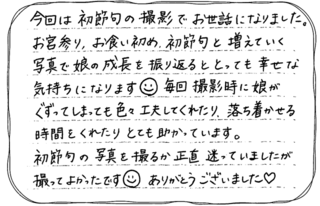 今回は初節句の撮影でお世話になりました。
お宮参り、お食い初め、初節句と増えていく
写真で娘の成長を振り返るととっても幸せな
気持ちになります☺ 毎回撮影時に娘が
ぐずってしまっても色々工夫してくれたり、落ち着かせる
時間をくれたりとても助かっています。
初節句の写真を撮るか正直迷っていましたが
撮ってよかったです☺ ありがとうございました♡